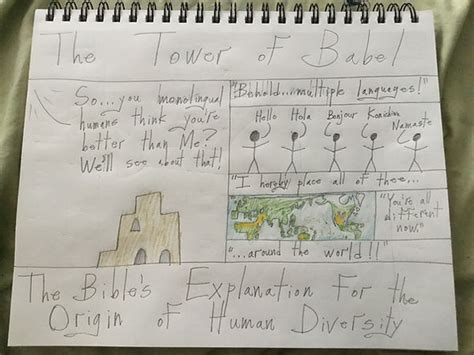 The Tower of Babel
So...you monolingual
humans think you're
better than Me?
We'll see about that!
"Behold...multiple languages!"
Hello Hola Bonjour Konichiwa Namaste
"I hereby place all of thee...
"You're all
different
now."
"...around the world!!"
The Bible's Explanation For the
Origin of Human Diversity